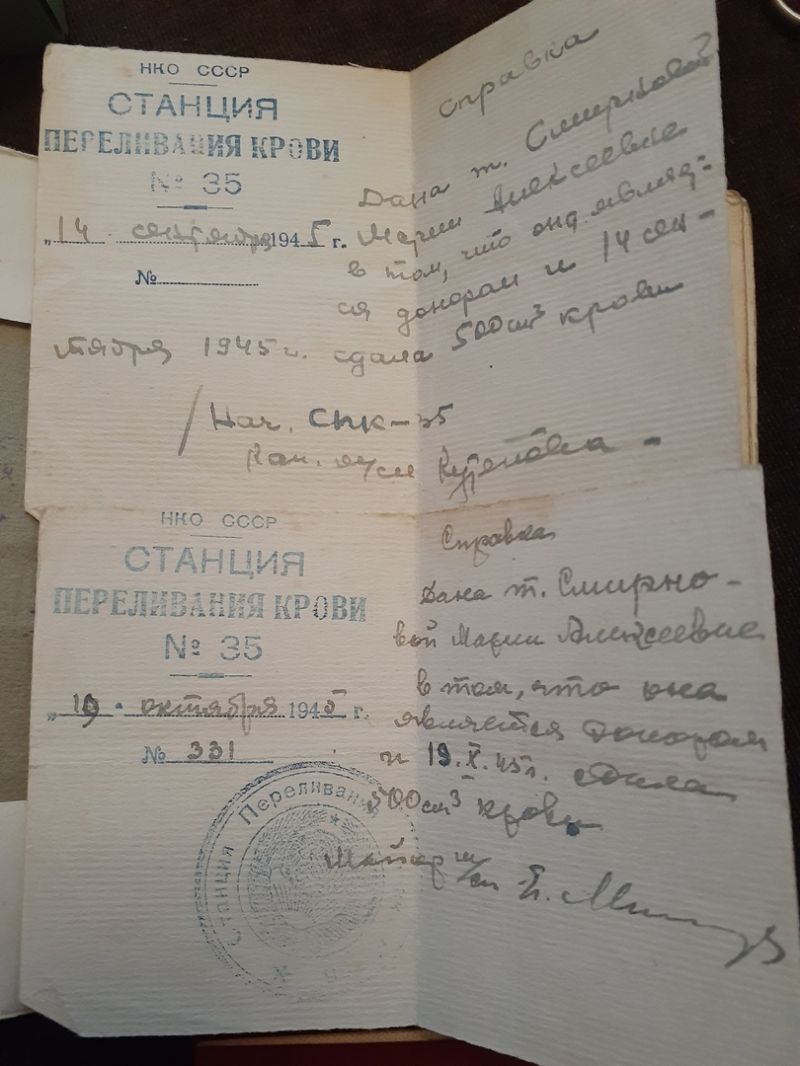 НКО СССР
СТАНЦИЯ
ПЕРЕЛИВАНИЯ КРОВИ
№ 35
„14 сентября 1945 г.
№
справка
Дана т. Смирновой
Марии Алексеевне
в том, что она являет-
ся донором и 14 сен-
тября 1945 г. сдала 500 см³ крови
/Нач. СПК-35
м/сл
НКО СССР
СТАНЦИЯ
ПЕРЕЛИВАНИЯ КРОВИ
№ 35
„19 октября 1945 г.
№ 331
Справка
Дана т. Смирно-
вой Марии Алексеевне
в том, что она
является донором
и 19.X.45г. сдала
500 см³ крови
Майор м/сл
Станция Переливания